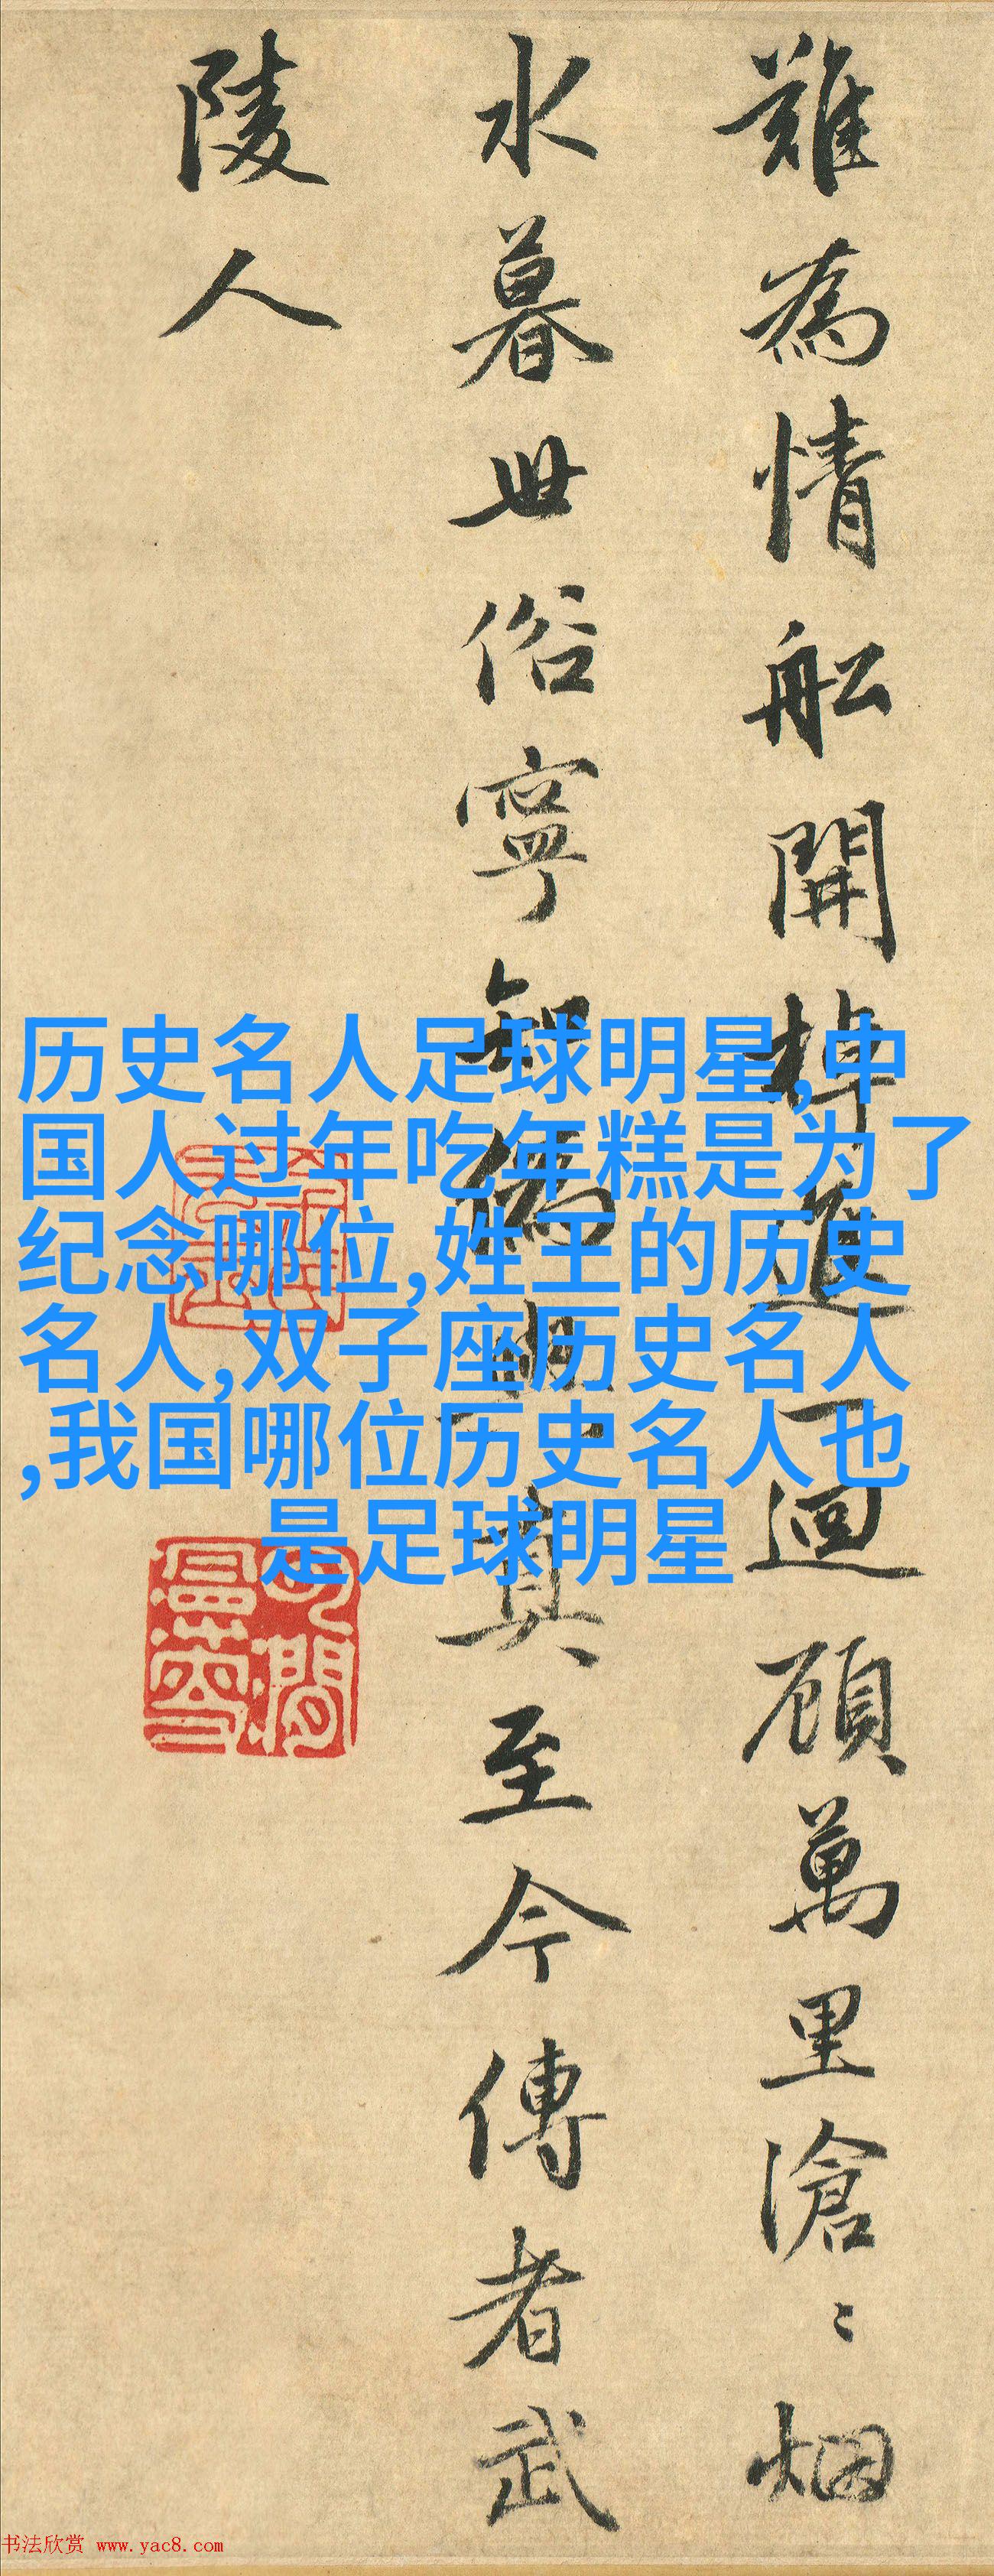 難為情舩開棹進一迴顧萬里滄〻烟
水暮世俗寧知偽與真至今傳者武
陵人
历史名人足球明星,中
国人过年吃年糕是为了
纪念哪位,姓王的历史
名人,双子座历史名人
,我国哪位历史名人也
是足球明星
书法欣赏 www.yac8.com